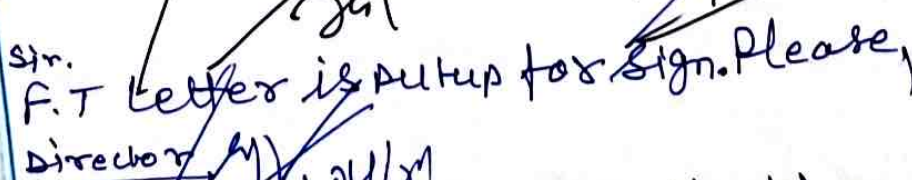 Sir.
F.T Letter is putup for sign. Please,
Director